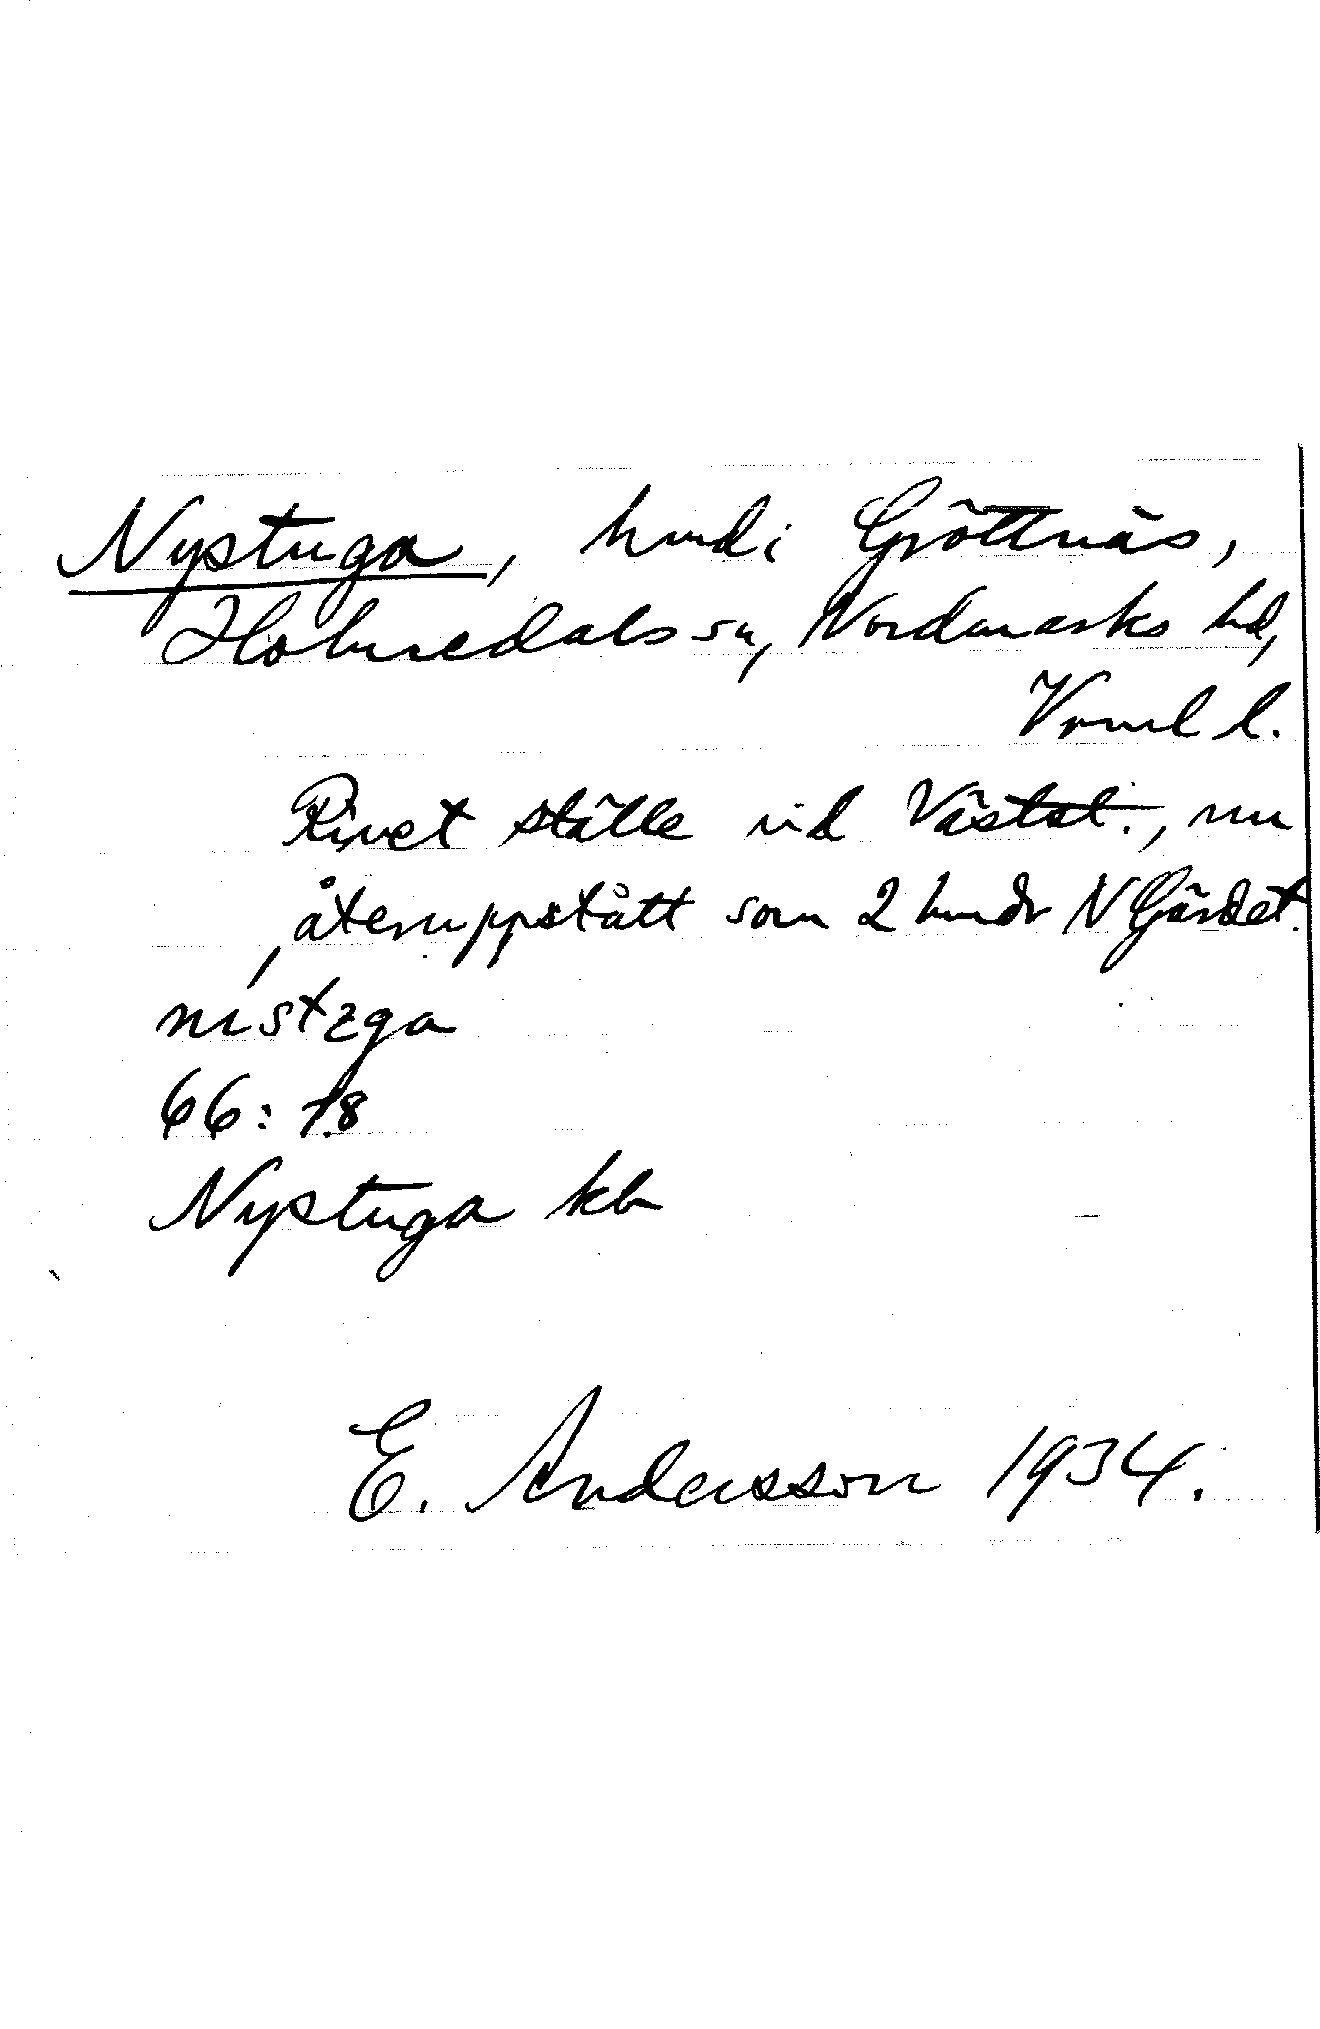 Nystuga, hmd i Gröttnäs,
Holmedals sn, Nordmarks hd,
Vrml l.
Rivet ställe vid Västst., nu
återuppstått som 2 hmdr N Gärdet.
nystzga
66: 18
Nystuga kb
E. Andersson 1934.